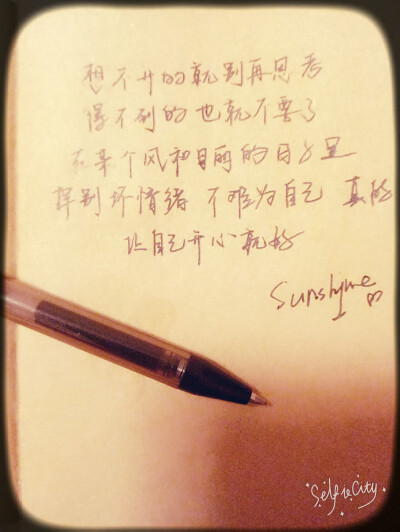 想不开的就别再思考
得不到的也就不要了
在某个风和日丽的日子里
挥别坏情绪 不难为自己 真的
让自己开心就好
Sunshine
Selfie City